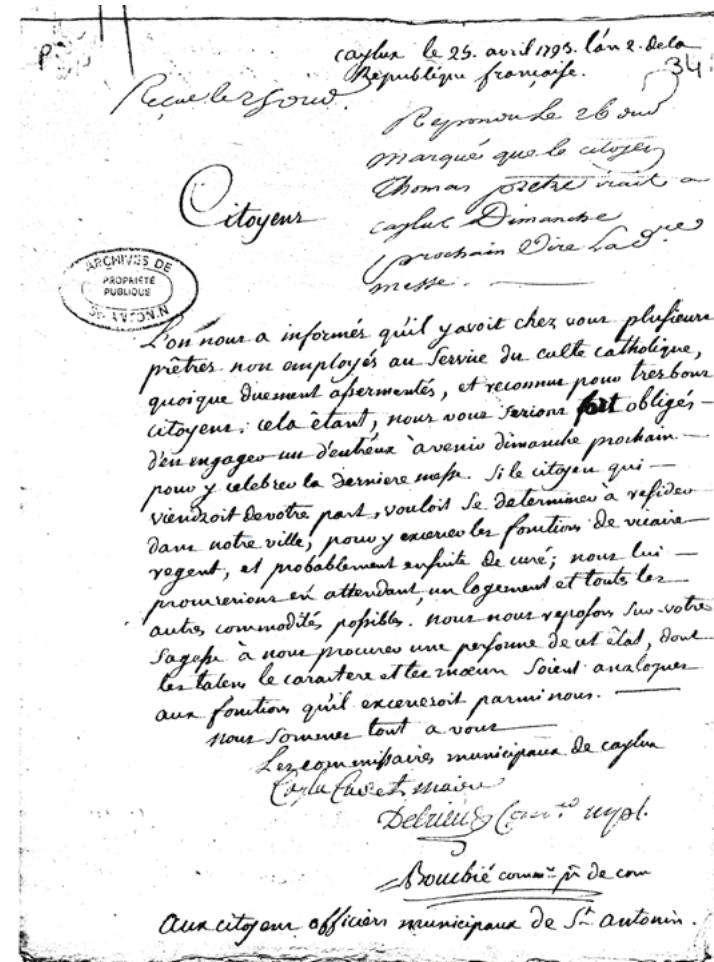 p.
caylux le 25. avril 1793. l'an 2. de la
République françoise.
34
Reçue le 25 avril.
Repondu le 26 avril
marqué que le citoyen
Thomas pretre irait a
caylux Dimanche
prochain Dire La d.re
messe.
Citoyens
ARCHIVES DE
PROPRIÉTÉ
PUBLIQUE
ST ANTONIN
L'on nous a informés qu'il y avoit chez vous plusieurs
prêtres non employés au service du culte catholique,
quoique duement assermentés, et reconnus pour tres bons
citoyens; cela êtant, nous vous serions fort obligés
d'en engager un d'entr'eux à venir dimanche prochain
pour y celebrer la derniere messe. Si le citoyen qui
viendroit de votre part, vouloit se determiner a resider
dans notre ville, pour y exercer les fonctions de vicaire
regent, et probablement ensuite de curé; nous lui
procurerions en attendant, un logement et touts les
autres commodités possibles. nous nous reposons sur votre
sagesse à nous procurer une personne de cet état, dont
les talens le caractere et les mœurs soient analogues
aux fonctions qu'il exerceroit parmi nous.
nous sommes tout a vous
Les commissaires municipaux de caylux
maire
Delrieu
Bombié comm.re de com
Aux citoyens officiers municipaux de St. antonin.